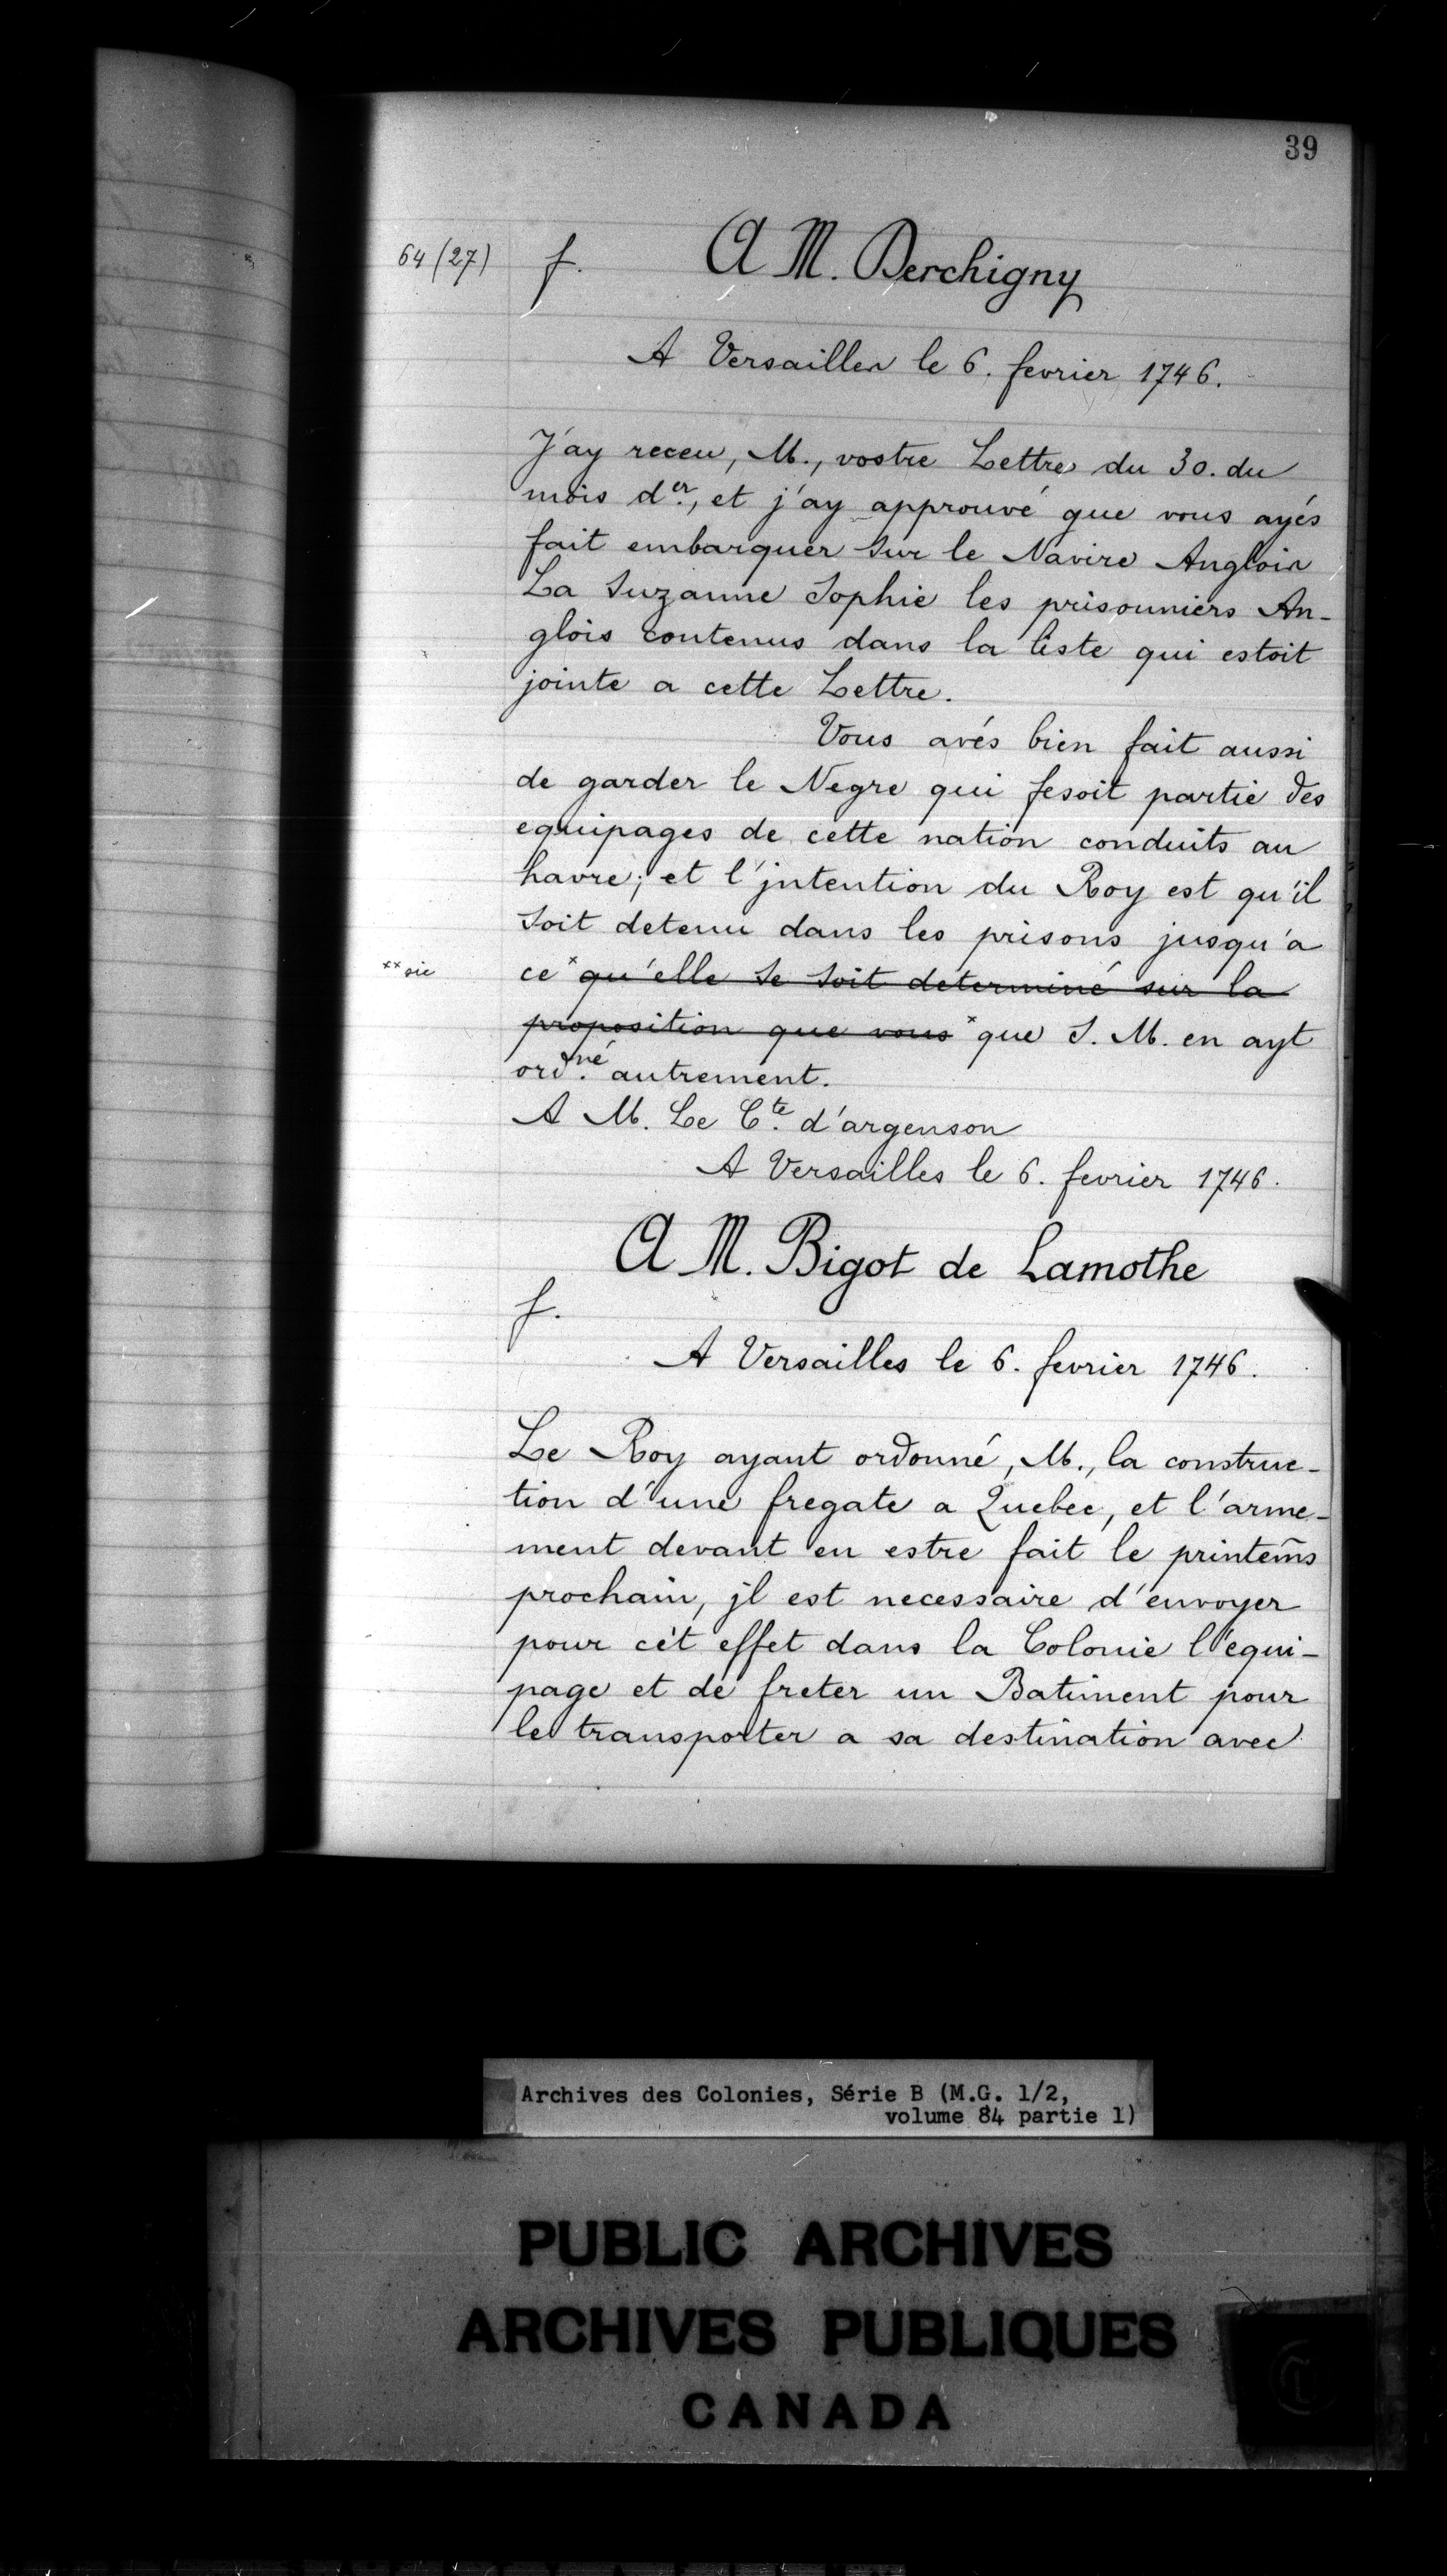 39
64 (27) f. A M. Derchigny
A Versailles le 6. fevrier 1746.
J'ay receu, M., vostre Lettre du 30. du
mois d.er, et j'ay approuvé que vous ayés
fait embarquer sur le Navire Anglois
La Suzanne Sophie les prisonniers An-
glois contenus dans la liste qui estoit
jointe a cette Lettre.
Vous avés bien fait aussi
de garder le Negre qui fesoit partie des
equipages de cette nation conduits au
havre; et l'jntention du Roy est qu'il
soit detenu dans les prisons jusqu'a
xx sic ce x qu'elle se soit determiné sur la
proposition que vous x que S. M. en ayt
ord.né autrement.
A M. Le C.te d'argenson
A Versailles le 6. fevrier 1746.
A M. Bigot de Lamothe
f.
A Versailles le 6. fevrier 1746.
Le Roy ayant ordonné, M., la construc-
tion d'une fregate a Quebec, et l'arme-
ment devant en estre fait le printem̃s
prochain, jl est necessaire d'envoyer
pour cèt effet dans la Colonie l'equi-
page et de freter un Batiment pour
le transporter a sa destination avec
Archives des Colonies, Série B (M.G. 1/2,
volume 84 partie 1)
PUBLIC ARCHIVES
ARCHIVES PUBLIQUES
CANADA